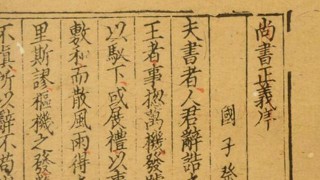 尚書正義序
國子祭
夫書者人君辭誥
王者事揔萬機發
以馭下或展禮以事
敷和而散風雨得
里斯謬樞機之發
不慎所以辭不苟